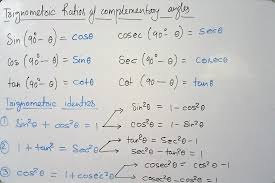 Trignometric Ratios of complementary angles
Sin (90° - θ) = cosθ    cosec (90° - θ) = Secθ
cos (90° - θ) = Sinθ    Sec (90° - θ) = Cosecθ
tan (90° - θ) = cotθ    Cot (90 - θ) = tanθ
Trignometric identies
Sin²θ = 1 - cos²θ
① Sin²θ + cos²θ = 1
cos²θ = 1 - Sin²θ
tan²θ = Sec²θ - 1
② 1 + tan² = Sec²θ
Sec²θ - tan²θ = 1
cosec²θ = cot²θ - 1
③ cos²θ = 1 + cosec²θ
cosec²θ - cos²θ = 1